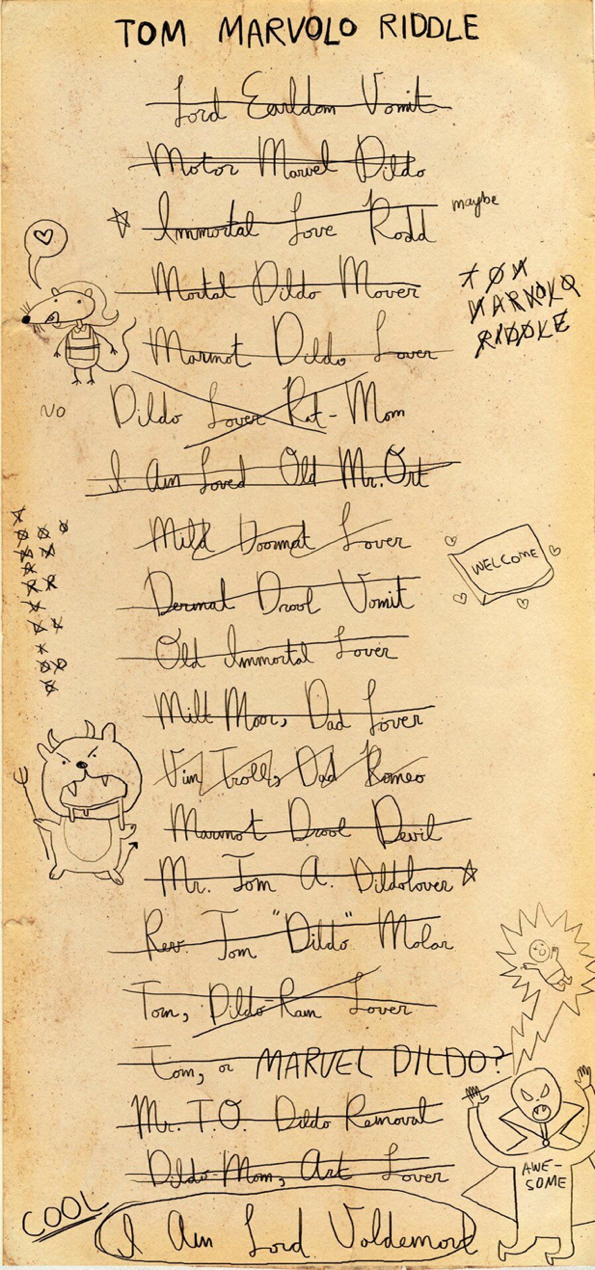 TOM MARVOLO RIDDLE
Lord Earldom Vomit
Motor Marvel Dildo
Immortal Love Rodd
maybe
Mortal Dildo Mover
TOM
MARVOLO
RIDDLE
Marmot Dildo Lover
NO
Dildo Lover Rat-Mom
I Am Loved Old Mr. Ort
Mild Doormat Lover
WELCOME
Dermal Drool Vomit
Old Immortal Lover
Milt Moor, Dad Lover
Vim Troll, Dad Romeo
Marmot Drool Devil
Mr. Tom A. Dildolover
Rev. Tom "Dildo" Molar
Tom, Dildo-Ram Lover
Tom, or MARVEL DILDO?
Mr. T.O. Dildo Removal
AWE-
SOME
Dildo-Mom, Art Lover
COOL
I Am Lord Voldemort